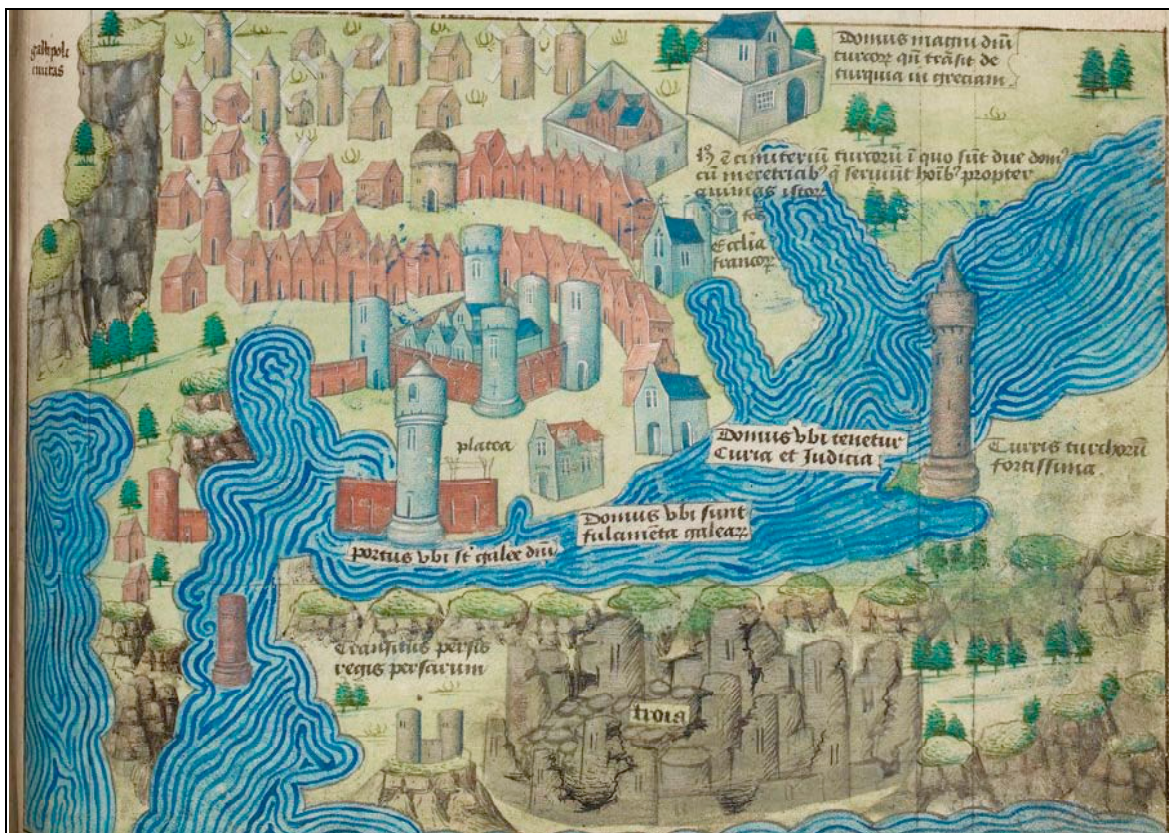 gallipolĩ
ciuitas
Domus magni dñi
turcoꝝ qñ trãsit de
turquia in greciam
cimiteriũ turcorũ ĩ quo sũt due domꝰ
cũ meretricibꝰ q̃ seruiũt hoĩbꝰ propter
istoꝝ
Ecclĩa
francoꝝ
platea
Domus vbi tenetur
Curia et Iudicia
Turris turchorũ
fortissima
Domus vbi sunt
fulamẽta galeaꝝ
portus vbi st̃ galee dñi
Transitus persis
regis persarum
troia